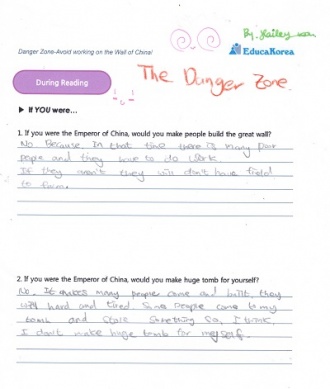 By. Hailey
Danger Zone-Avoid working on the Wall of China!
EducaKorea
During Reading
The Danger Zone.
▶ If YOU were...
1. If you were the Emperor of China, would you make people build the great wall?
No Because In that time there is many poor
people and they have to do work
If they aren't they will don't have field
to farm.
2. If you were the Emperor of China, would you make huge tomb for yourself?
No. It makes many people came and built, they
will hard and tired Some people came to my
tomb and stole something So, I think,
I don't make huge tomb for myself.